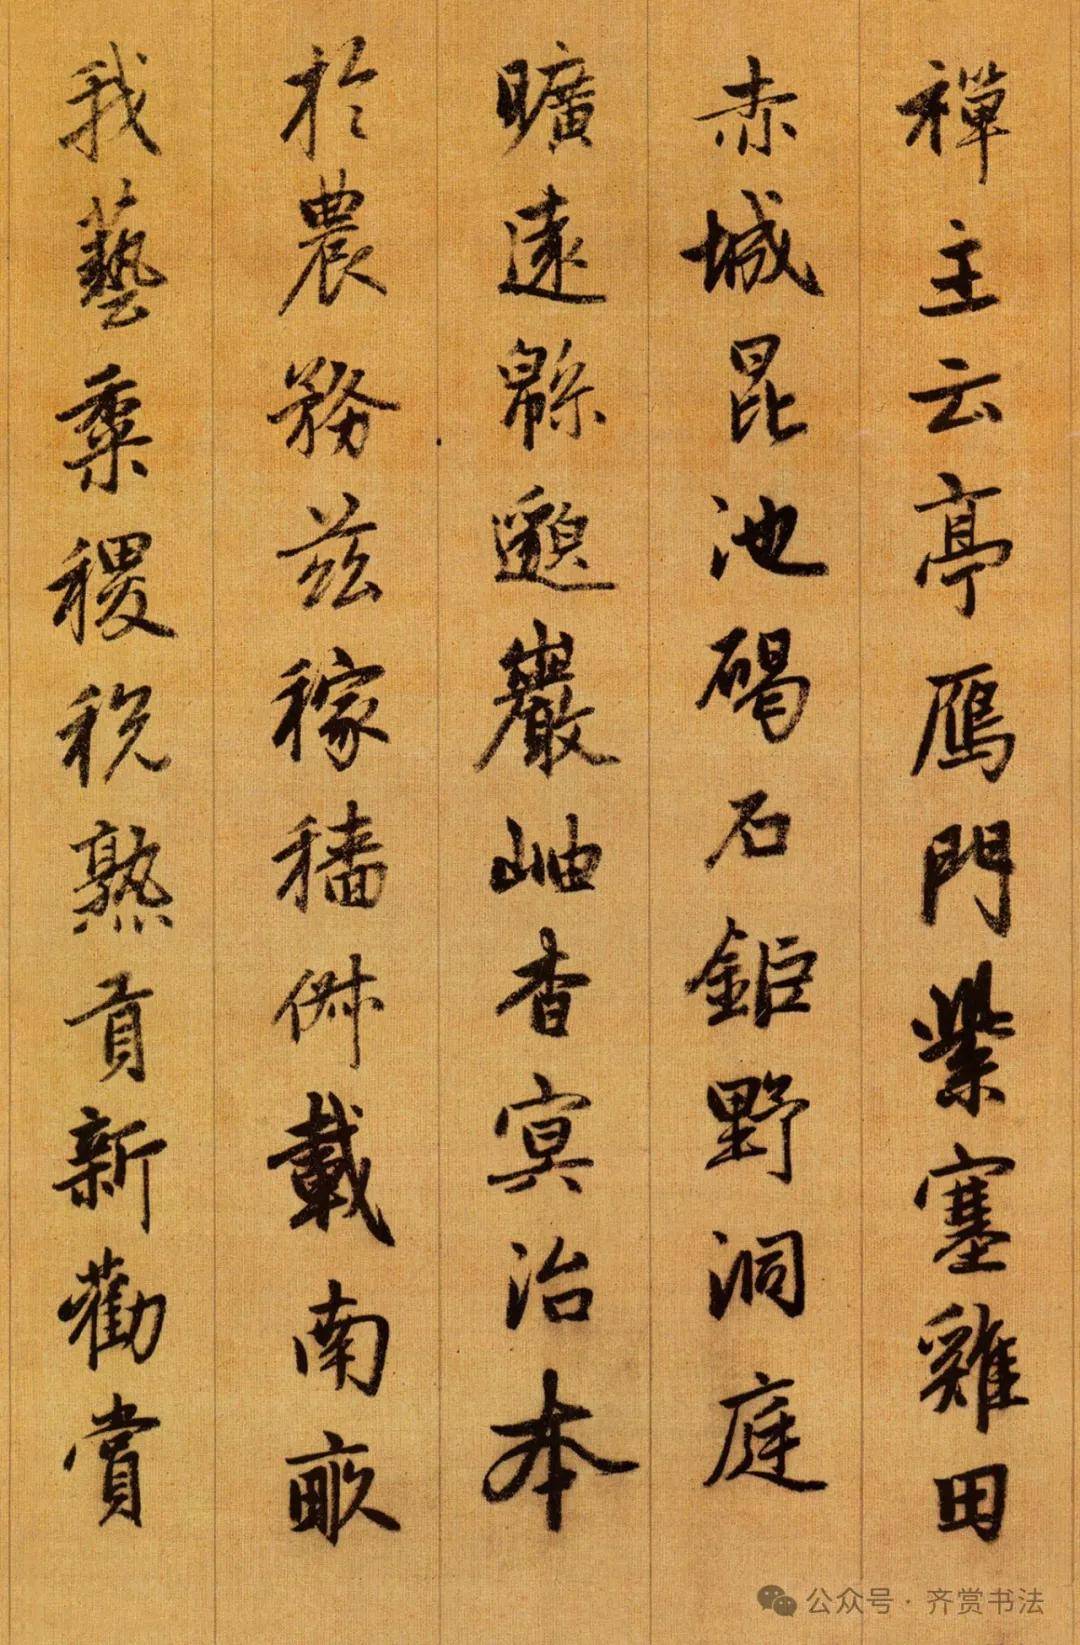 禪主云亭鴈門紫塞雞田
赤城昆池碣石鉅野洞庭
曠遠緜邈巖岫杳冥治本
於農務茲稼穡俶載南畝
我藝黍稷稅熟貢新勸賞
公众号·齐赏书法